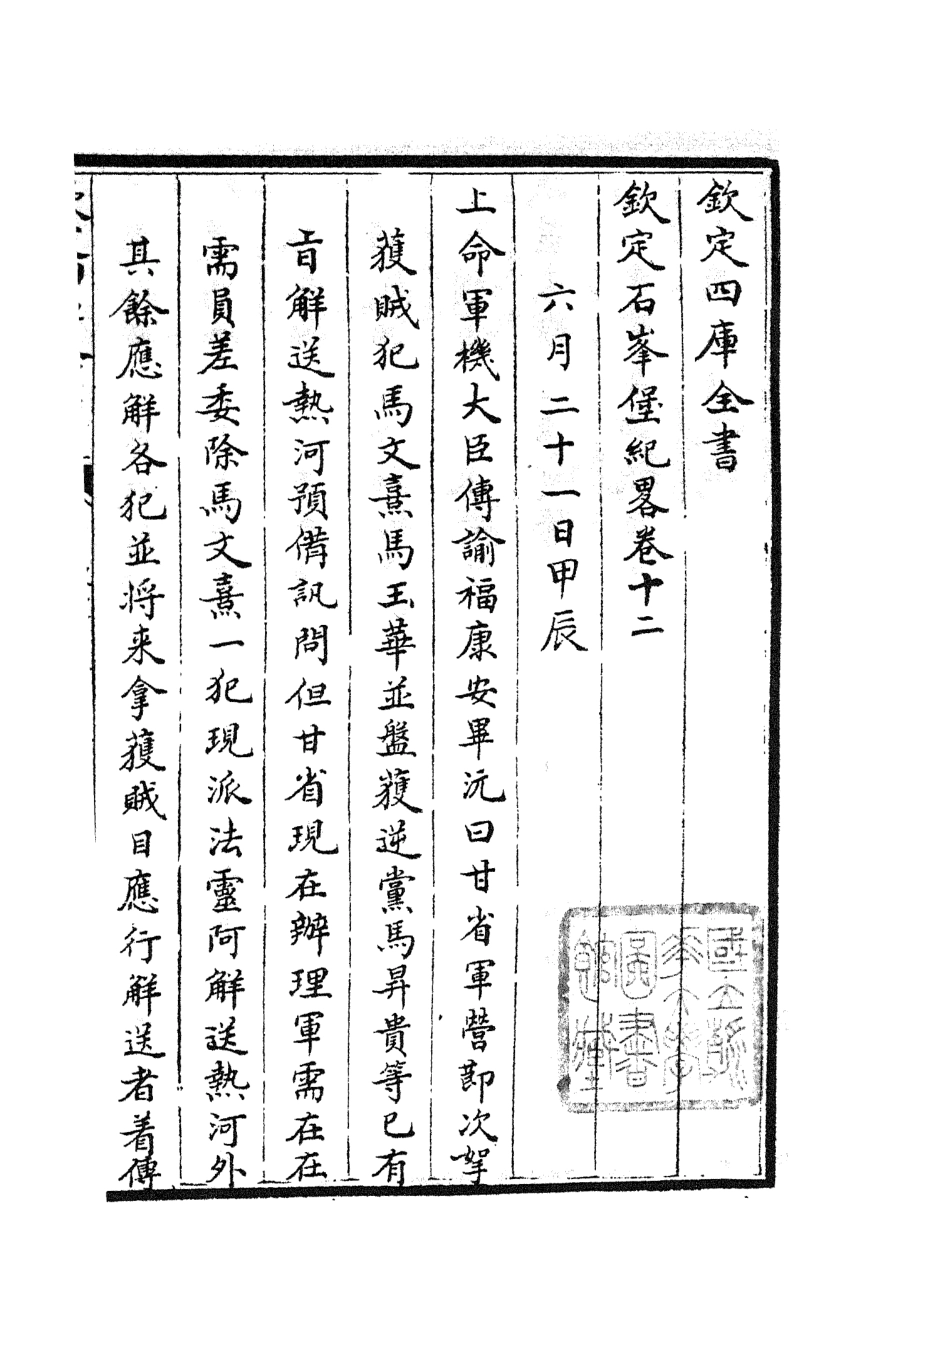 欽定四庫全書
欽定石峯堡紀畧卷十二
六月二十一日甲辰
上命軍機大臣傳諭福康安畢沅曰甘省軍營節次拏
獲賊犯馬文熹馬玉華並盤獲逆黨馬昇貴等已有
旨解送熱河預備訊問但甘省現在辦理軍需在在
需員差委除馬文熹一犯現派法靈阿解送熱河外
其餘應解各犯並將來拿獲賊目應行解送者着傳